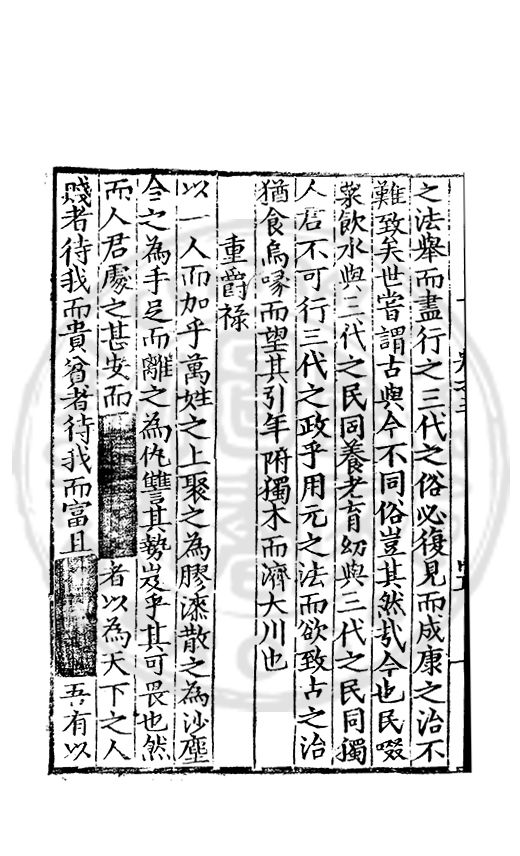 之法舉而盡行之三代之俗必復見而成康之治不
難致矣世嘗謂古與今不同俗豈其然㢤今也民啜
菽飲水與三代之民同養老育幼與三代之民同獨
人君不可行三代之政乎用元之法而欲致古之治
猶食烏喙而望其引年附獨木而濟大川也
重爵祿
以一人而加乎萬姓之上聚之為膠漆散之為沙塵
合之為手足而離之為仇讐其勢岌乎其可畏也然
而人君處之甚安而
者以為天下之人
賤者待我而貴貧者待我而富且
吾有以